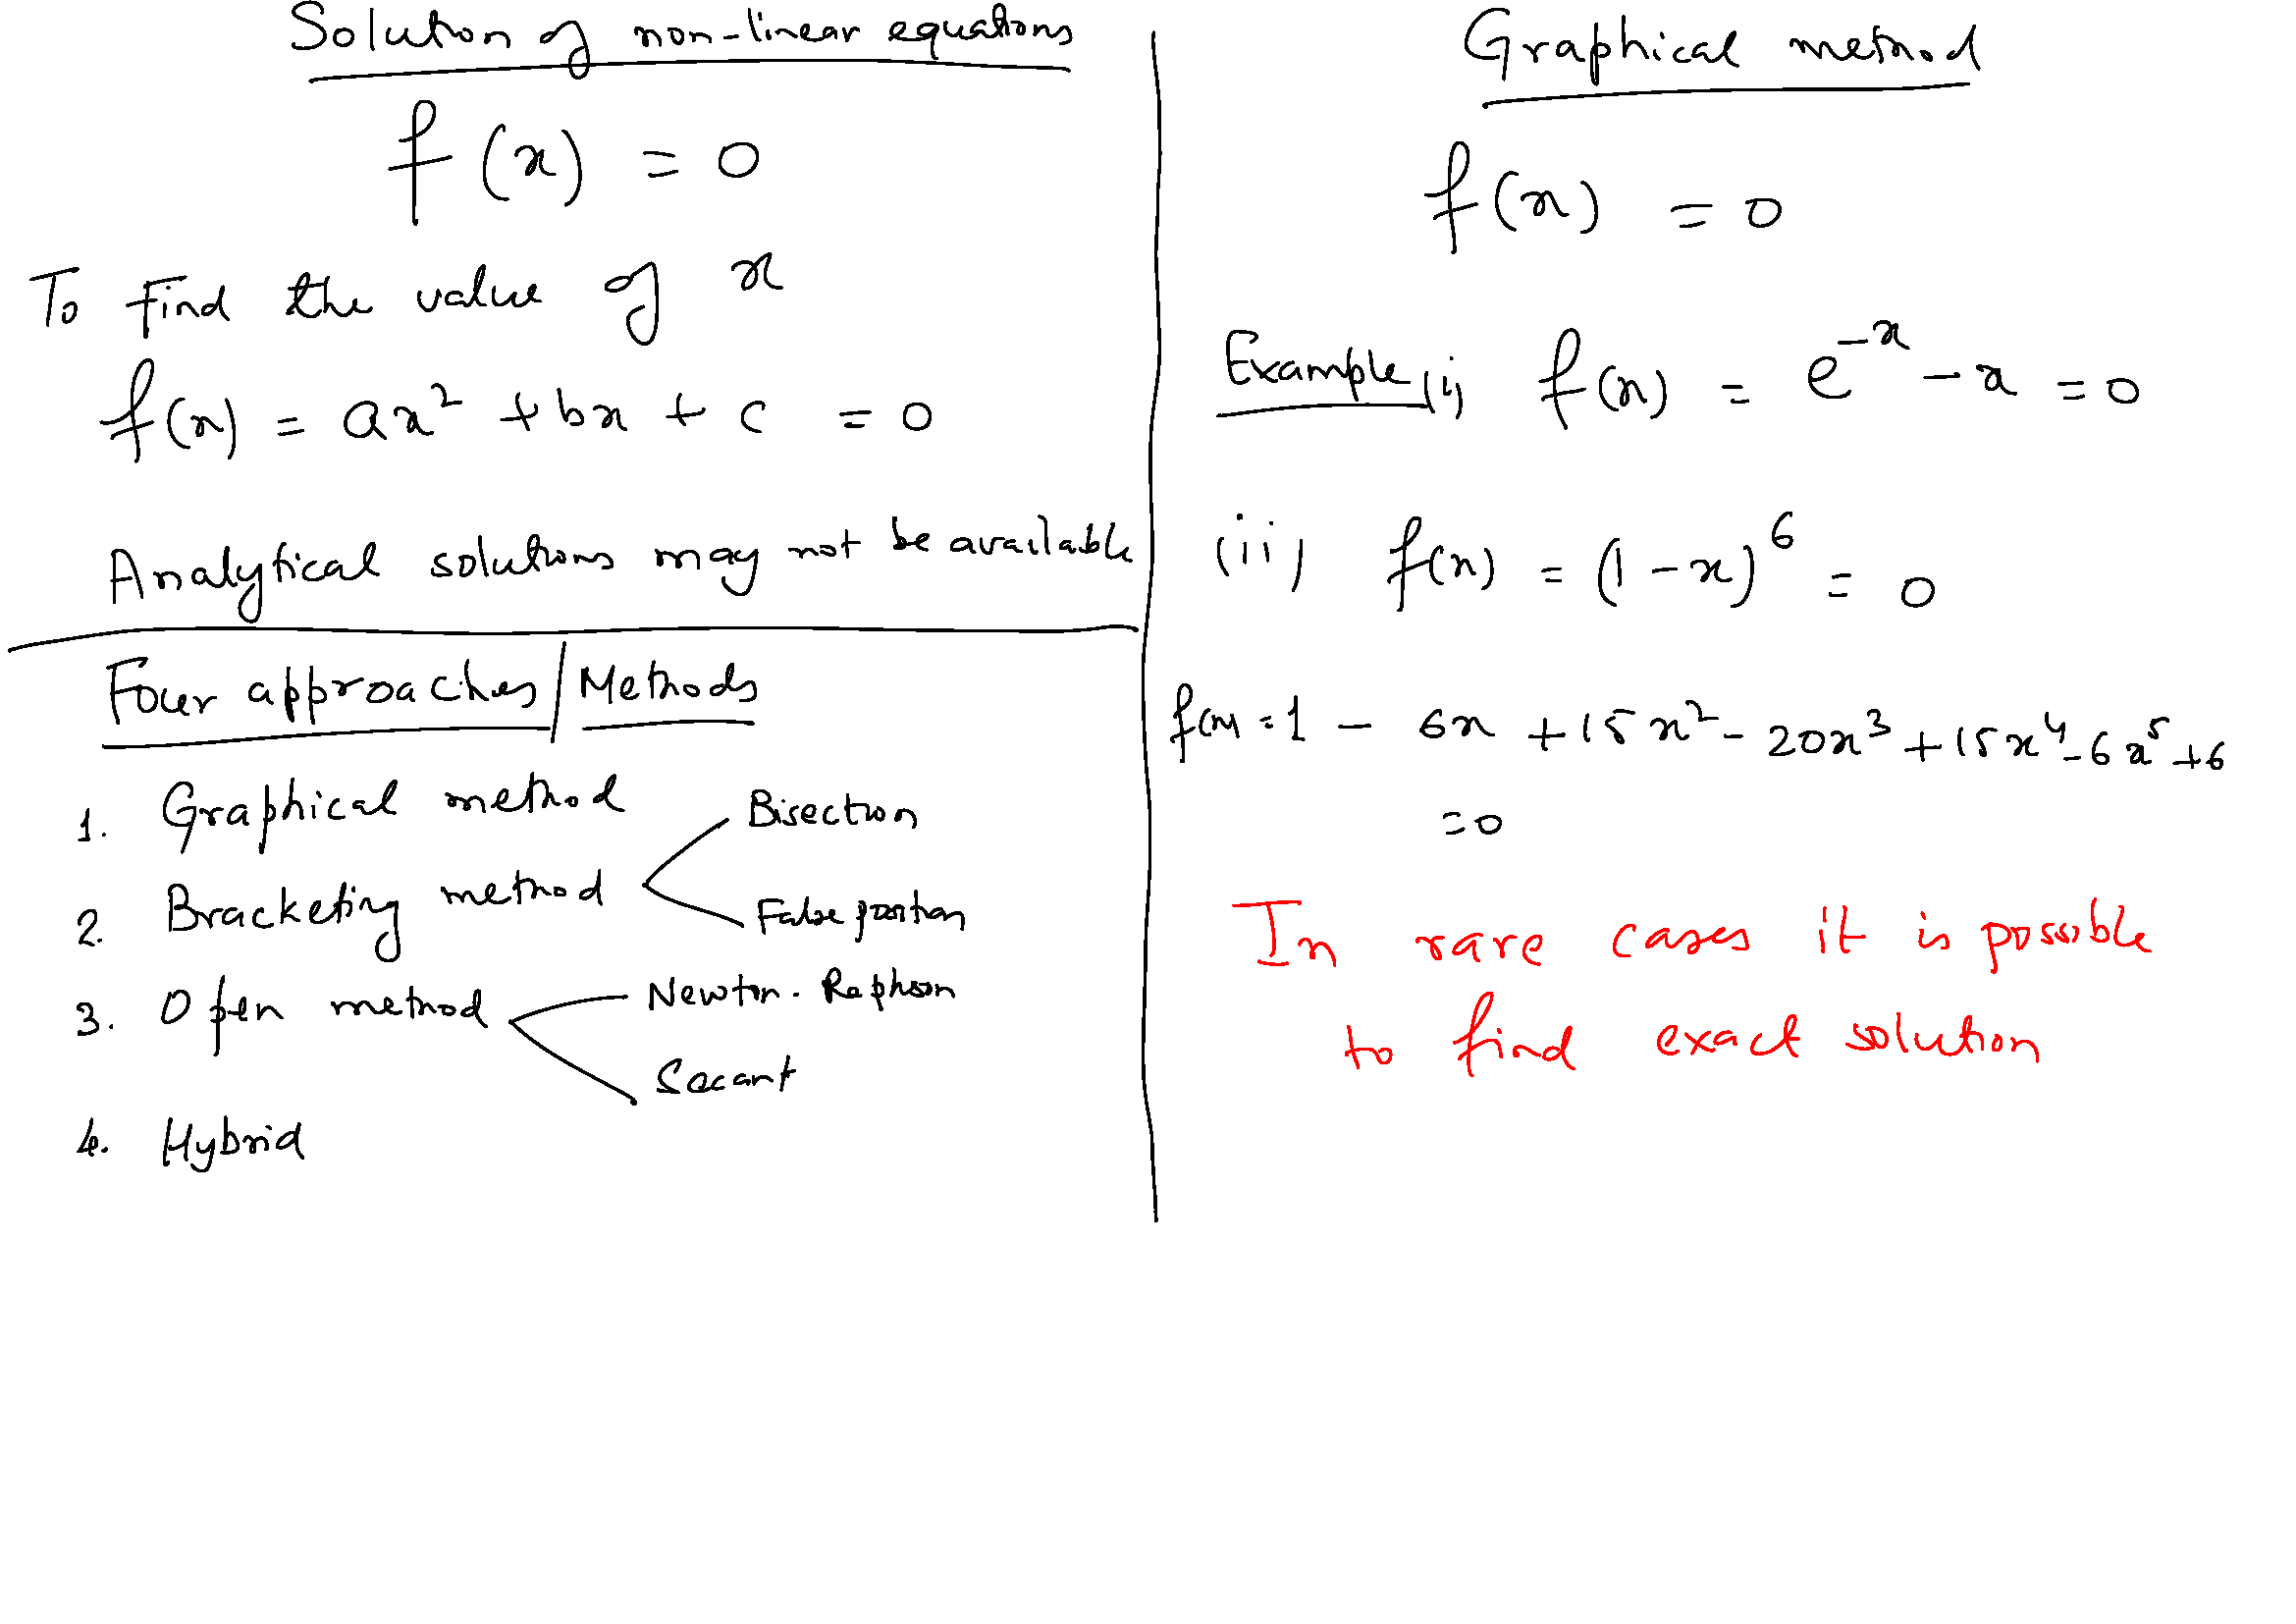 Solution of non-linear equations
f(x) = 0
To find the value of x
f(x) = ax² + bx + c = 0
Analytical solutions may not be available
Four approaches / Methods
1. Graphical method
2. Bracketing method
Bisection
False position
3. Open method
Newton-Raphson
Secant
4. Hybrid
Graphical method
f(x) = 0
Example (i) f(x) = e⁻ˣ - x = 0
(ii) f(x) = (1-x)⁶ = 0
f(x) = 1 - 6x + 15x² - 20x³ + 15x⁴ - 6x⁵ + 6
= 0
In rare cases it is possible
to find exact solution